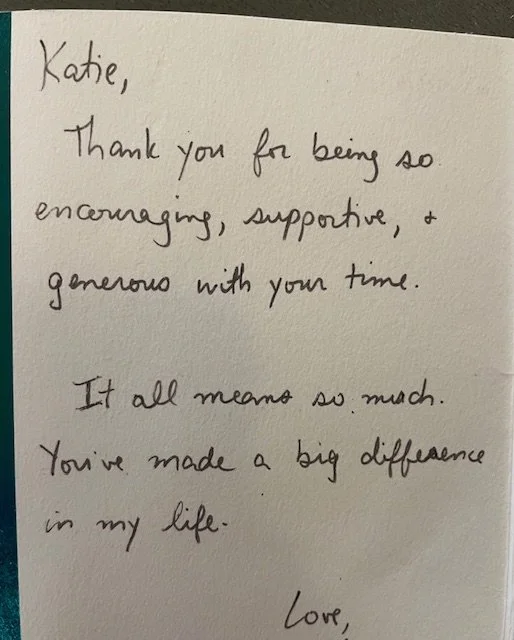 Katie,
Thank you for being so
encouraging, supportive, &
generous with your time.
It all means so much.
You've made a big difference
in my life.
Love,